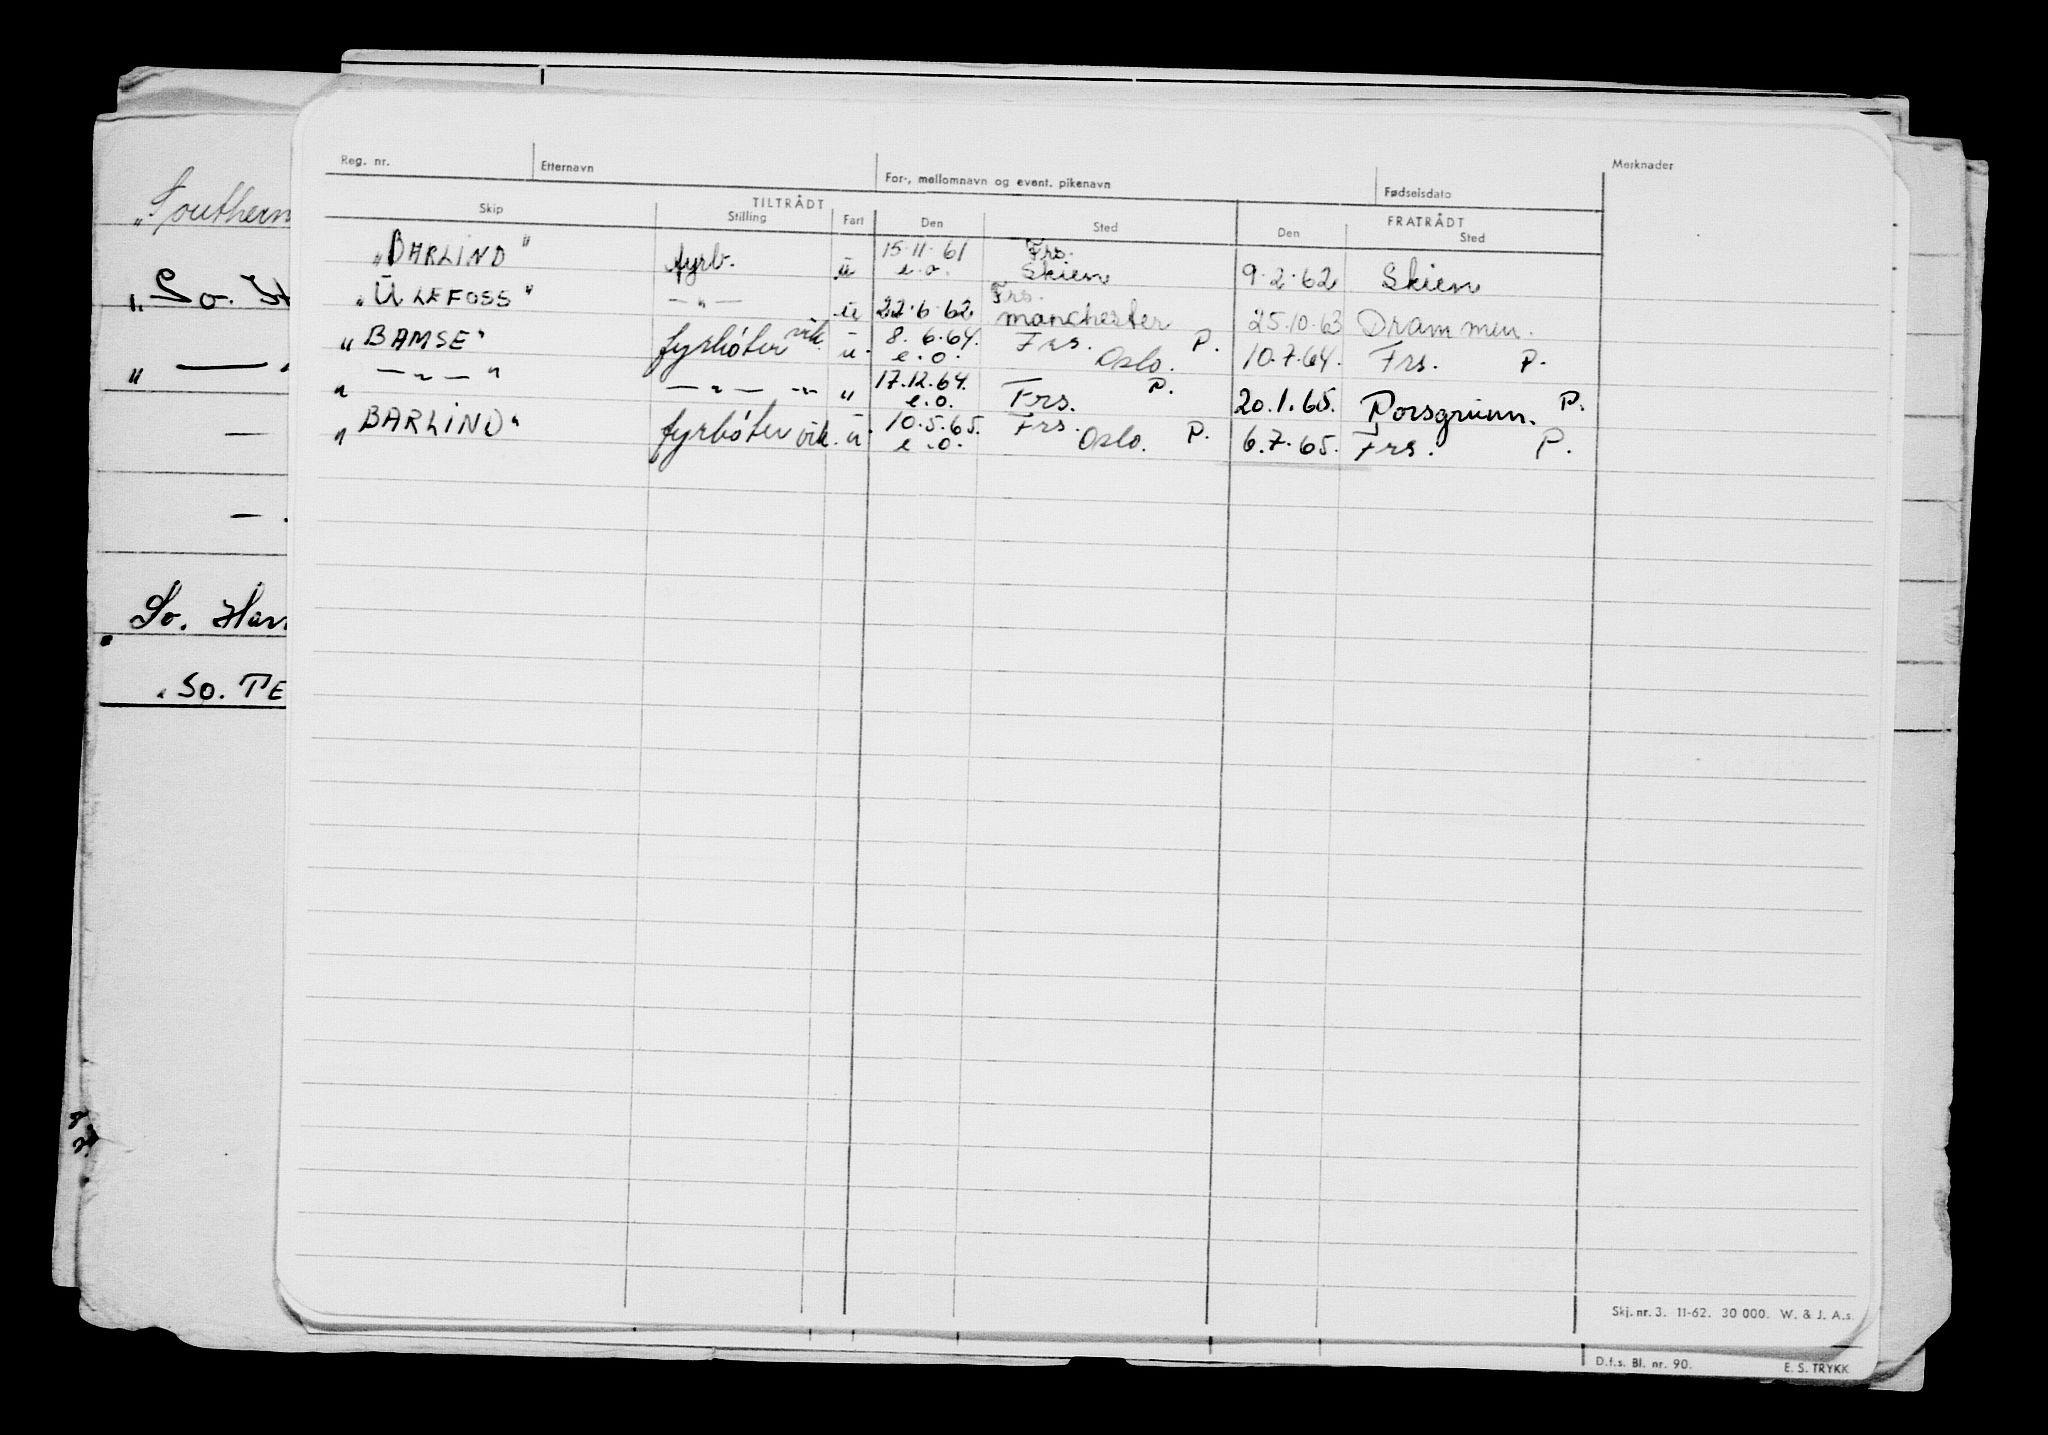 Reg. nr. Etternavn For-, mellomnavn og event. pikenavn Fødselsdato Merknader
TILTRÅDT FRATRÅDT
Skip Stilling Fart Den Sted Den Sted
„BARLIND" fyrb. ü 15.11.61 e.o. Frs. Skien 9.2.62 Skien
„ÜLEFOSS" — „ — ü 22.6.62 Frs. Manchester 25.10.63 Drammen.
„BAMSE" fyrbøter vik. ü. 8.6.64. e.o. Frs. Oslo. P. 10.7.64. Frs. P.
„ — „ — " — „ — „ „ 17.12.64. e.o. Frs. P. 20.1.65. Porsgrunn. P.
„BARLIND" fyrbøter vik. ü. 10.5.65. e.o. Frs. Oslo. P. 6.7.65. Frs. P.
„Southern
„So.
„ —
—
—
So. Har
„So. TE
Skj. nr. 3. 11-62. 30 000. W. & J. A.s.
D.f.s. Bl. nr. 90. E. S. TRYKK